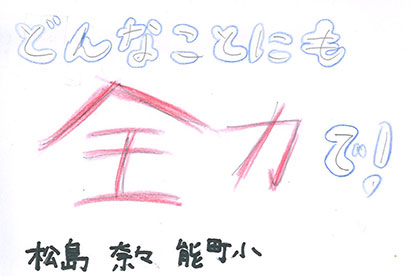 どんなことにも
全力で!
松島 奈々 能町小